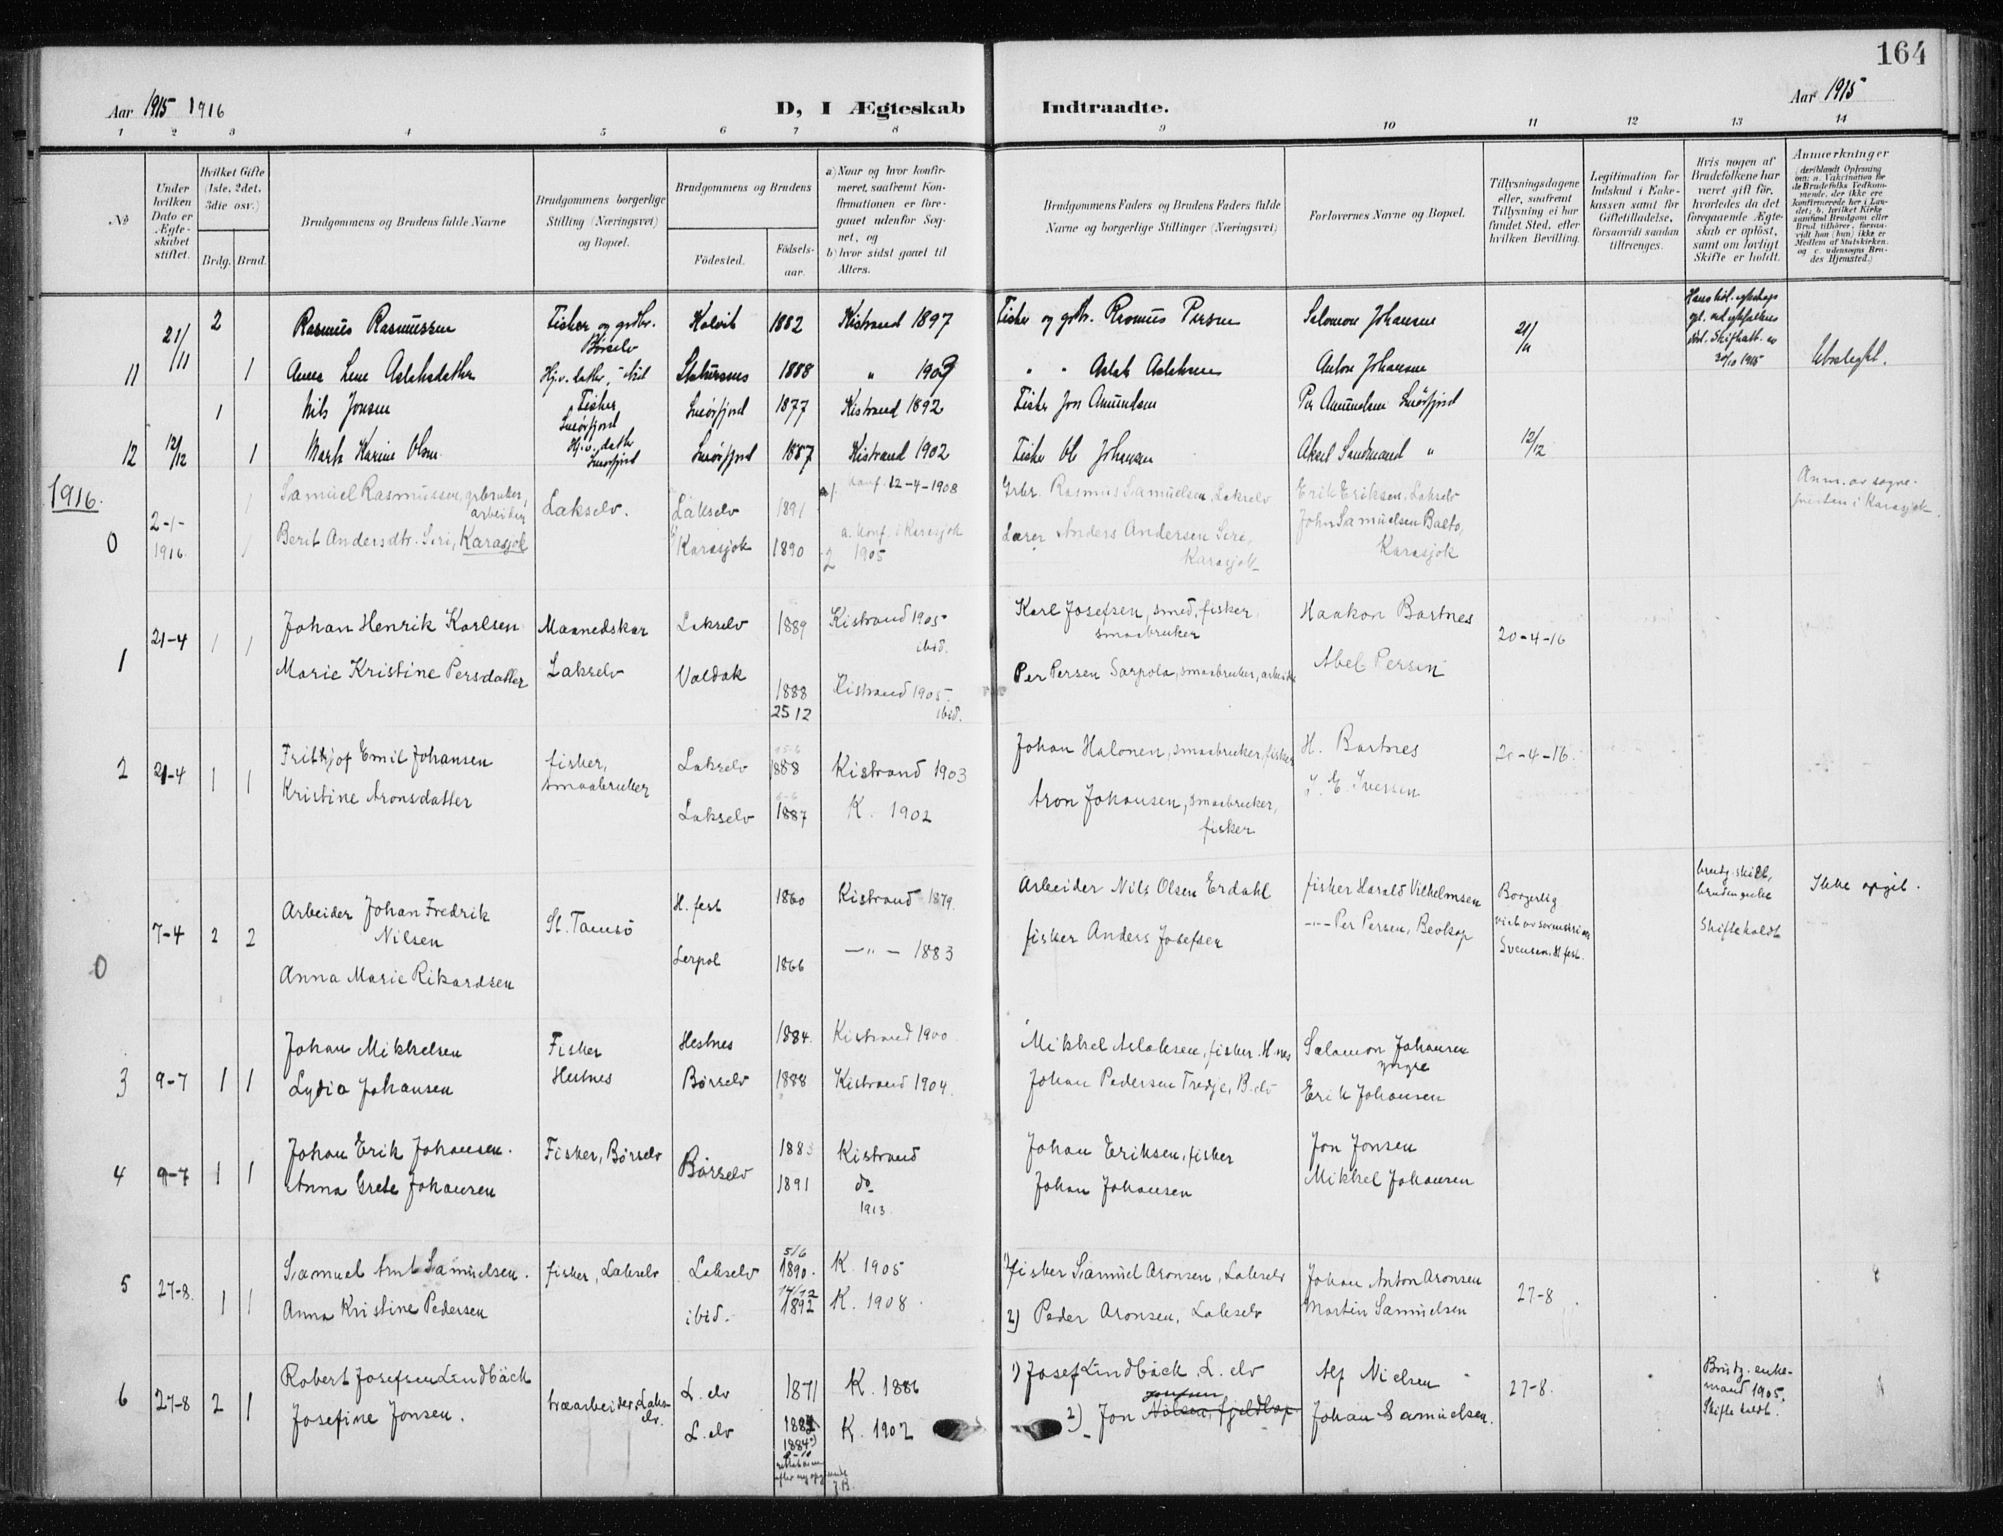 164
Aar 1915 1916
D, I Ægteskab Indtraadte.
Aar 1915
1 2 3 4 5 6 7 8 9 10 11 12 13 14
No
Under hvilken Dato er Ægteskabet stiftet.
Hvilket Gifte (1ste, 2det, 3die osv.)
Brdg. Brud.
Brudgommens og Brudens fulde Navne
Brudgommens borgerlige Stilling (Næringsvei) og Bopæl.
Brudgommens og Brudens
Fødested.
Fødselsaar.
a) Naar og hvor konfirmeret, saafremt Konfirmationen er foregaaet udenfor Sognet, og
b) hvor sidst gaaet til Alters.
Brudgommens Faders og Brudens Faders fulde Navne og borgerlige Stillinger (Næringsvei)
Forlovernes Navne og Bopæl.
Tillysningsdagene eller, saafremt Tillysning ei har fundet Sted, efter hvilken Bevilling.
Legitimation for Indskud i Enkekassen samt for Giftetilladelse, forsaavidt saadan tiltrænges.
Hvis nogen af Brudefolkene har været gift før, hvorledes da det foregaaende Ægteskab er opløst, samt om lovligt Skifte er holdt.
Anmerkninger
21/11 2 Rasmus Rasmussen Fisker og grdbr. Børselv Kolvik 1882 Kistrand 1897 Fisker og grdbr. Rasmus Persen Salomon Johansen 21/11
11 1 Anna Lene Aslaksdatter Hj.v. datter 1888 " 1903 " " Aslak Aslaksen Anton Johansen 30/10 1915 Ubeslegtet.
1 Nils Jonsen Fisker Smørfjord Smørfjord 1877 Kistrand 1892 Fisker Jon Amundsen Per Amundsen Smørfjord
12 12/12 1 Marit Karine Olsen Hj.v. datter Smørfjord Smørfjord 1887 Kistrand 1902 Fisker Ole Johansen Aksel Sandmand " 12/12
1916.
1 Samuel Rasmussen, grbruker, arbeider Lakselv. Lakselv 1891 a). Konf. 12-4-1908 Grbr. Rasmus Samuelsen, Lakselv Erik Eriksen, Lakselv Anm. av sognepresten i Karasjok.
0 2-1-1916. 1 Berit Andersdtr. Siri, Karasjok Karasjok 1890 a. Konf. i Karasjok 1905 Lærer Anders Andersen Siri, Karasjok John Samuelsen Balto, Karasjok
1 21-4 1 1 Johan Henrik Karlsen Maanedskar Lakselv 1889 Kistrand 1905 ibid. Karl Josefsen, smed, fisker, smaabruker Haakon Bartnes 20-4-16
Marie Kristine Persdatter Lakselv Valdak 1888 25 12 Kistrand 1905. ibid. Per Persen Sarpola, smaabruker, arbeider Abel Persen
2 21-4 1 1 Frithjof Emil Johansen fisker, smaabruker Lakselv 1888 Kistrand 1903 Johan Halonen, smaabruker, fisker H. Bartnes 20-4-16.
Kristine Aronsdatter Lakselv 1887 K. 1902 Aron Johansen, smaabruker, fisker E. Iversen
0 7-4 2 2 Arbeider Johan Fredrik Nilsen St. Tamsø H.fest 1860 Kistrand 1879. Arbeider Nils Olsen Erdahl fisker Harald Vilhelmsen Borgerlig viet av Svensen, H.fest. brudg. skilt, bruden enke Skifte holdt Ikke opgit.
Anna Marie Rikardsen Lerpol 1866 —"— 1883 fisker Anders Josefsen —"— Per Persen, Bevkop
3 9-7 1 1 Johan Mikkelsen Fisker Hestnes Hestnes 1884. Kistrand 1900. Mikkel Aslaksen, fisker. H.nes Salamon Johansen yngre
Lydia Johansen Børselv 1888 Kistrand 1904. Johan Pedersen Tredje, B.elv Erik Johansen
4 9-7 1 1 Johan Erik Johansen. Fisker, Børselv Børselv 1883 Kistrand Johan Eriksen, fisker Jon Jonsen
Anna Grete Johansen 1891 do 1913. Johan Johansen Mikkel Johansen
5 27-8. 1 1 Samuel Arnt Samuelsen. fisker, Lakselv Lakselv 5/6 1890. K. 1905 1) fisker Samuel Aronsen, Lakselv Johan Anton Aronsen 27-8
Anna Kristine Pedersen ibid. 14/12 1892 K. 1908. 2) Peder Aronsen, Lakselv Martin Samuelsen
6 27-8 2 1 Robert Josefsen Lindbäck træarbeider, Lakselv. L. elv 1871 K. 1886 1) Josef Lindbäck L. elv Alf Nielsen 27-8. Brudg. enkemand 1905. Skifte holdt.
Josefine Jonsen. L. elv 1884 K. 1902 2) Jon Jonsen Johan Samuelsen.